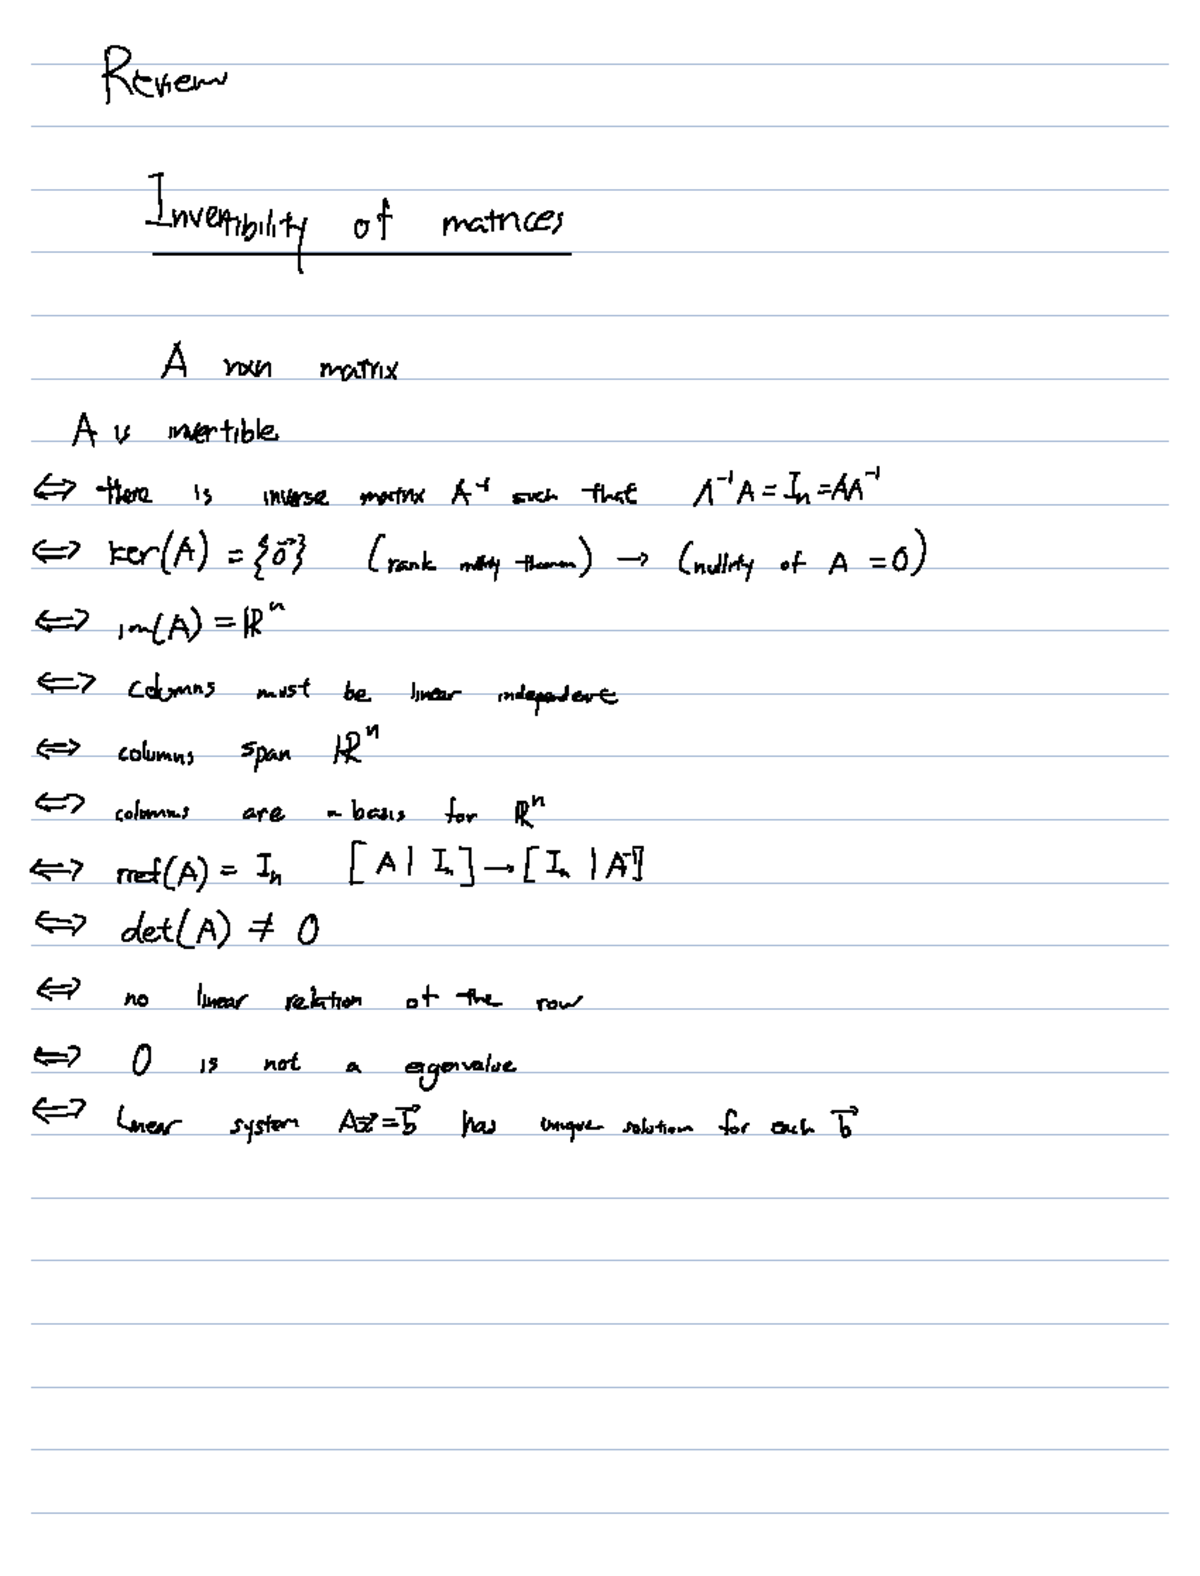 Review
Invertibility of matrices
A nxn matrix
A is invertible
⇔ there is inverse matrix A⁻¹ such that A⁻¹A = Iₙ = AA⁻¹
⇔ ker(A) = {0⃗} (rank nullity theorem) → (nullity of A = 0)
⇔ im(A) = ℝⁿ
⇔ columns must be linear independent
⇔ columns span ℝⁿ
⇔ columns are a basis for ℝⁿ
⇔ rref(A) = Iₙ [A | Iₙ] → [Iₙ | A⁻¹]
⇔ det(A) ≠ 0
⇔ no linear relation of the row
⇔ 0 is not a eigenvalue
⇔ Linear system Ax⃗ = b⃗ has unique solution for each b⃗